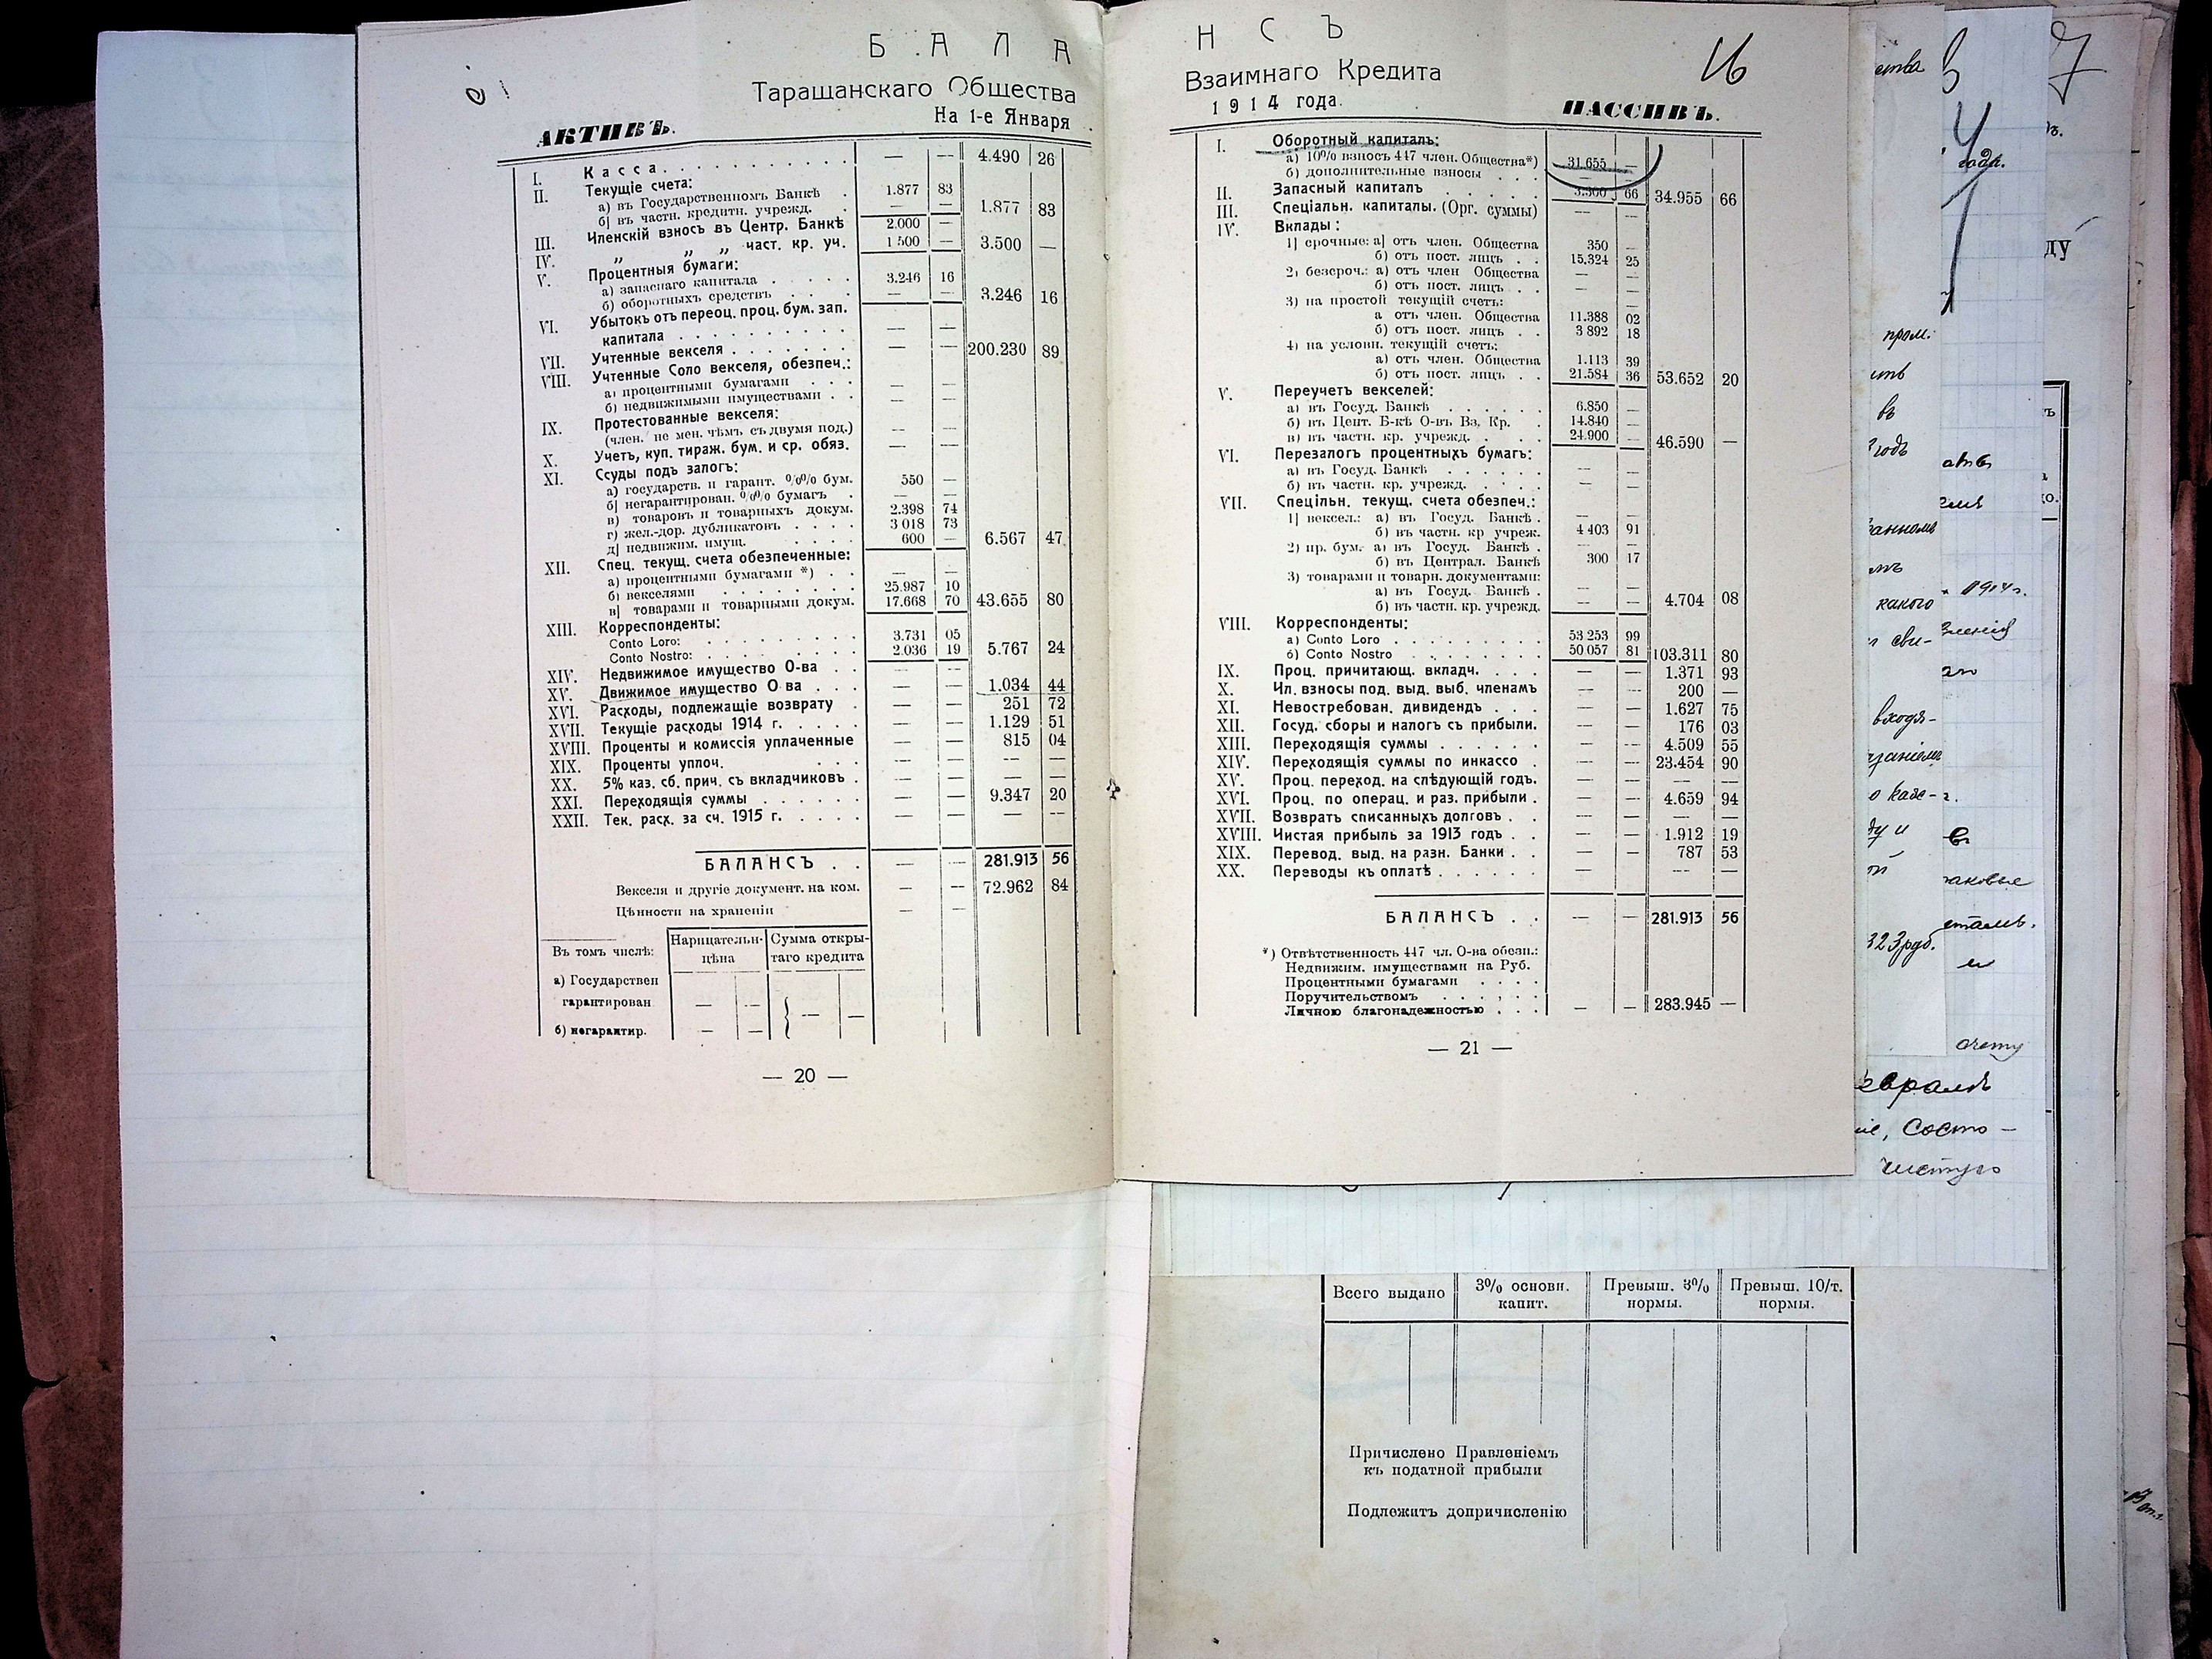 БАЛА
Таращанскаго Общества
На 1-е Января
АКТИВЪ.
I. Касса. — — 4.490 26
II. Текущіе счета:
а) въ Государственномъ Банкѣ . 1.877 83
б] въ частн. кредитн. учрежд. . — — 1.877 83
III. Членскій взносъ въ Центр. Банкѣ 2.000 —
IV. „ „ „ част. кр. уч. 1 500 — 3.500 —
V. Процентныя бумаги:
а) запаснаго капитала . . . . . 3.246 16
б) оборотныхъ средствъ . . . . — — 3.246 16
VI. Убытокъ отъ переоц. проц. бум. зап.
капитала . . . . . . . . — —
VII. Учтенные векселя . . . . . . . — — 200.230 89
VIII. Учтенные Соло векселя, обезпеч.:
а) процентными бумагами . . . — —
б) недвижимыми имуществами . . — —
IX. Протестованные векселя:
(член. не мен. чѣмъ съ двумя под.) — —
X. Учетъ, куп. тираж. бум. и ср. обяз. — —
XI. Ссуды подъ залогъ:
а) государств. и гарант. %% бум. 550 —
б] негарантирован. %% бумагъ . — —
в) товаровъ и товарныхъ докум. 2.398 74
г) жел.-дор. дубликатовъ . . . . 3 018 73
д] недвижим. имущ. . . . . . 600 — 6.567 47
XII. Спец. текущ. счета обезпеченные:
а) процентными бумагами *) . . — —
б) векселями . . . . . . . . 25.987 10
в] товарами и товарными докум. 17.668 70 43.655 80
XIII. Корреспонденты:
Conto Loro: . . . . . . . . . 3.731 05
Conto Nostro: . . . . . . . . . 2.036 19 5.767 24
XIV. Недвижимое имущество О-ва . . — —
XV. Движимое имущество О ва . . . — — 1.034 44
XVI. Расходы, подлежащіе возврату . — — 251 72
XVII. Текущіе расходы 1914 г. . . . . — — 1.129 51
XVIII. Проценты и комиссія уплаченные — — 815 04
XIX. Проценты уплоч. . . . — — — —
XX. 5% каз. сб. прич. съ вкладчиковъ . — — — —
XXI. Переходящія суммы . . . . . . — — 9.347 20
XXII. Тек. расх. за сч. 1915 г. . . . . — — — —
БАЛАНСЪ . . — — 281.913 56
Векселя и другіе документ. на ком. — — 72.962 84
Цѣнности на храненіи — —
Въ томъ числѣ: Нарицательн- Сумма откры-
цѣна таго кредита
а) Государствен
гарантирован — — — —
б) негарантир. — —
— 20 —
НСЪ
16
Взаимнаго Кредита
1914 года.
ПАССИВЪ.
I. Оборотный капиталъ:
а) 10% взносъ 447 член. Общества*) 31.655 —
б) дополнительные взносы . . . — —
II. Запасный капиталъ . . . . . 3.300 66 34.955 66
III. Спеціальн. капиталы. (Орг. суммы) — —
IV. Вклады:
1] срочные: а] отъ член. Общества 350 —
б) отъ пост. лицъ . . 15.324 25
2) безсроч.: а) отъ член Общества — —
б) отъ пост. лицъ . . — —
3) на простой текущій счетъ: —
а отъ член. Общества 11.388 02
б) отъ пост. лицъ . . 3 892 18
4) на условн. текущій счетъ:
а) отъ член. Общества 1.113 39
б) отъ пост. лицъ . . 21.584 36 53.652 20
V. Переучетъ векселей:
а) въ Госуд. Банкѣ . . . . . . 6.850 —
б) въ Цент. Б-кѣ О-въ Вз. Кр. . 14.840 —
в) въ частн. кр. учрежд. . . . . 24.900 — 46.590 —
VI. Перезалогъ процентныхъ бумагъ:
а) въ Госуд. Банкѣ . . . . . . — —
б) въ частн. кр. учрежд. . . . . — —
VII. Спецільн. текущ. счета обезпеч.:
1] вексел.: а) въ Госуд. Банкѣ .
б) въ частн. кр учреж. 4 403 91
2) пр. бум. а) въ Госуд. Банкѣ .
б) въ Централ. Банкѣ 300 17
3) товарами и товарн. документами:
а) въ Госуд. Банкѣ .
б) въ частн. кр. учрежд. — — 4.704 08
VIII. Корреспонденты:
а) Conto Loro . . . . . . . . . 53 253 99
б) Conto Nostro . . . . . . . . 50 057 81 103.311 80
IX. Проц. причитающ. вкладч. . . . — — 1.371 93
X. Ил. взносы под. выд. выб. членамъ — — 200 —
XI. Невостребован. дивидендъ . . . — — 1.627 75
XII. Госуд. сборы и налогъ съ прибыли. — — 176 03
XIII. Переходящія суммы . . . . . . — — 4.509 55
XIV. Переходящія суммы по инкассо . — — 23.454 90
XV. Проц. переход. на слѣдующій годъ. — — — —
XVI. Проц. по операц. и раз. прибыли . — — 4.659 94
XVII. Возвратъ списанныхъ долговъ . . — — — —
XVIII. Чистая прибыль за 1913 годъ . . — — 1.912 19
XIX. Перевод. выд. на разн. Банки . . — — 787 53
XX. Переводы къ оплатѣ . . . . . . — — — —
БАЛАНСЪ . . — — 281.913 56
*) Отвѣтственность 447 чл. О-ва обезп.:
Недвижим. имуществами на Руб.
Процентными бумагами . . . .
Поручительствомъ . . . . . .
Личною благонадежностью . . . — — 283.945 —
— 21 —
7
ства
года.
ДУ
пром.
въ
годъ
какого
1914 г.
сви-
входя-
323 руб.
счету
сто, Состо-
чистую
Всего выдано 3% основн. Превыш. 3% Превыш. 10/т.
капит. нормы. нормы.
Причислено Правленіемъ
къ податной прибыли
Подлежитъ допричисленію